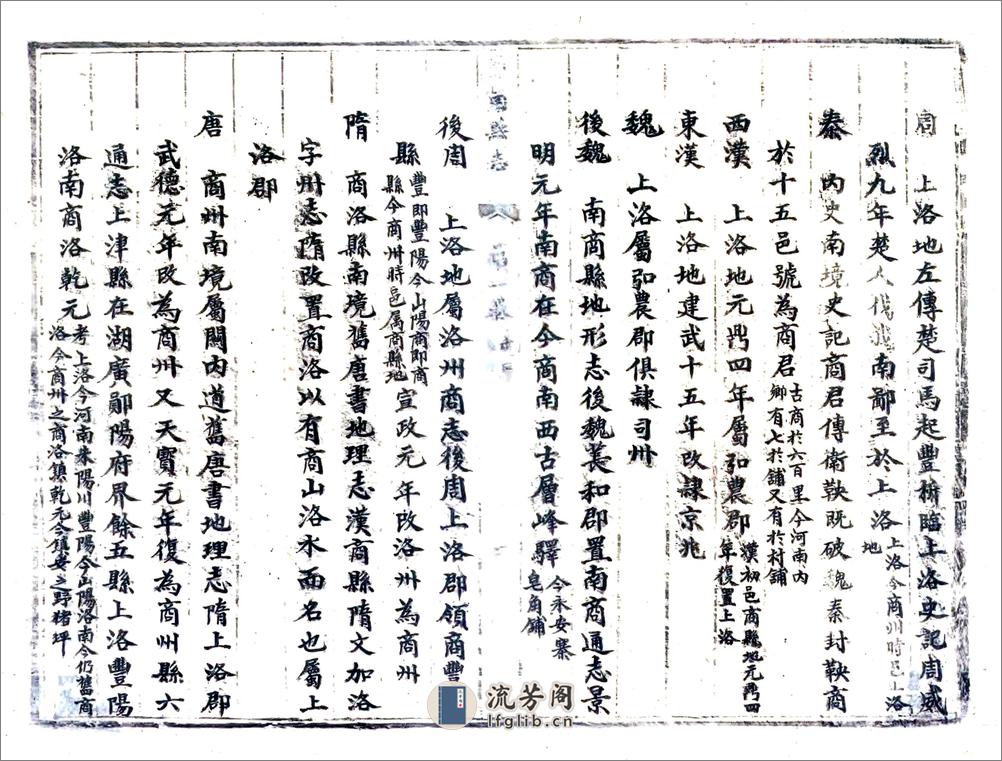 周　上洛地左傳楚司馬起豐析臨上洛史記周威
烈九年楚人伐魏南鄙至於上洛上洛今商州時邑上洛地
秦　內史南境史記商君傳衛鞅既破魏秦封鞅商
於十五邑號為商君古商於六百里今河南內鄉有七於舖又有於村舖
西漢　上洛地元鼎四年屬弘農郡漢初邑商縣地元鼎四年復置上洛
東漢　上洛地建武十五年改隸京兆
魏　上洛屬弘農郡俱隸司州
後魏　南商縣地形志後魏萇和郡置南商通志景
明元年南商在今商南西古層峰驛今永安寨皂角舖
縣志
後周　上洛地屬洛州商志後周上洛郡領商豐
縣豐即豐陽今山陽商即商縣今商州時邑属商縣地宣政元年改洛州為商州
隋　商洛縣南境舊唐書地理志漢商縣隋文加洛
字州志隋改置商洛以有商山洛水而名也屬上
洛郡
唐　商州南境屬關內道舊唐書地理志隋上洛郡
武德元年改為商州又天寶元年復為商州縣六
通志上津縣在湖廣鄖陽府界餘五縣上洛豐陽
洛南商洛乾元考上洛今河南朱陽川豐陽今山陽洛南今仍舊商洛今商州之商洛鎮乾元今鎮安之野猪坪
流芳阁
lfglib.cn